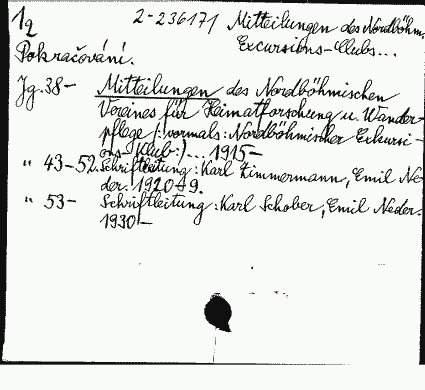 1q 2-236171 Mitteilungen des Nordböhm.
Excursions-Clubs...
Pokračování.
Jg. 38- Mitteilungen des Nordböhmischen
Vereines für Heimatforschung u. Wander-
pflege (:vormals: Nordböhmischer Exkursi-
ons-Klub:)... 1915-
" 43-52. Schriftleitung: Karl Zimmermann, Emil Ne-
der. 1920-9.
" 53- Schriftleitung: Karl Schober, Emil Neder.
1930-